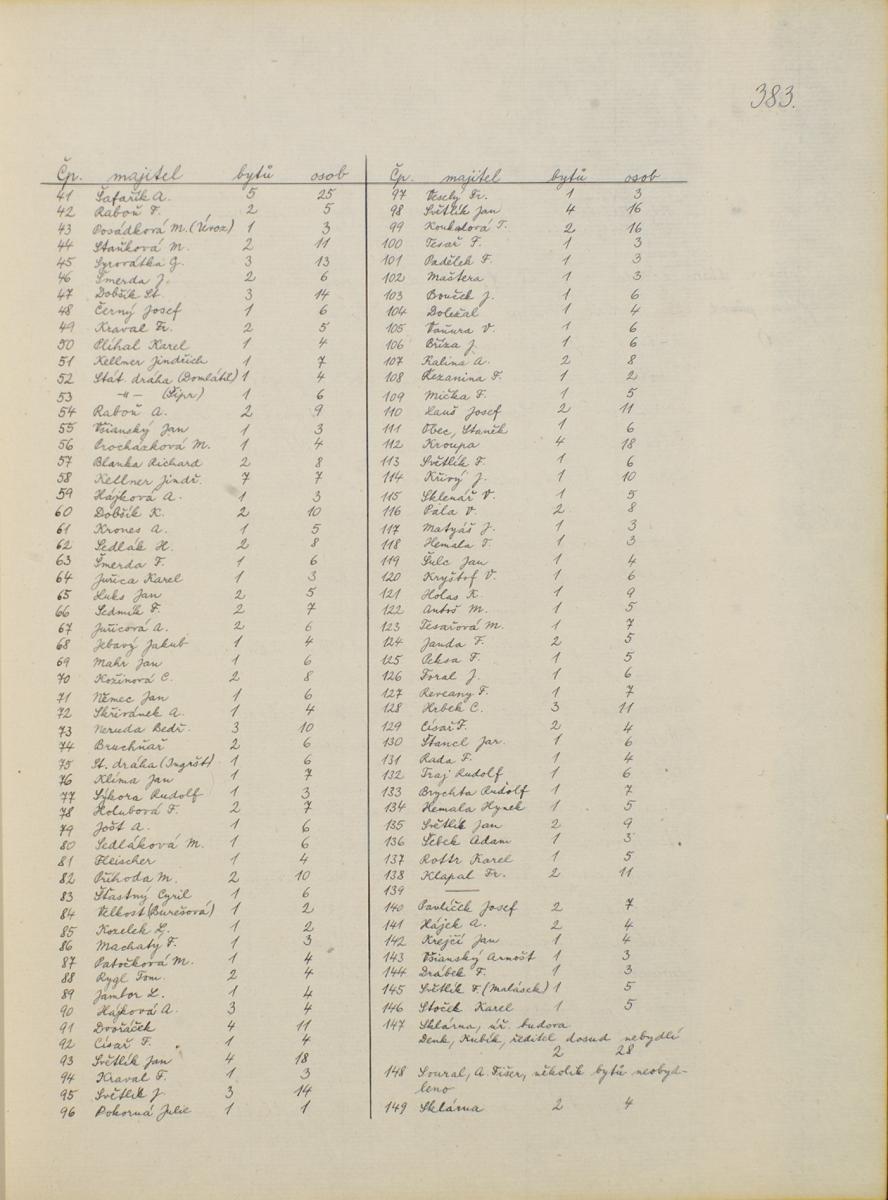 383.
Čp. majitel bytů osob
41 Šafařík A. 5 25
42 Raboň F. 2 5
43 Posádková M. (Úvoz) 1 3
44 Staňková M. 2 11
45 Syrovátka G. 3 13
46 Šmerda J. 2 6
47 Dobšík St. 3 14
48 Černý Josef 1 6
49 Kraval Fr. 2 5
50 Plíhal Karel 1 4
51 Kellner Jindřich 1 7
52 Stát. dráha (Domlátil) 1 4
53 -„- (Šípr) 1 6
54 Raboň A. 2 9
55 Všianský Jan 1 3
56 Procházková M. 1 4
57 Blanka Richard 2 8
58 Kellner Jindř. 7 7
59 Hájková A. 1 3
60 Dobšík K. 2 10
61 Krones A. 1 5
62 Sedlák H. 2 8
63 Šmerda F. 1 6
64 Juřica Karel 1 3
65 Huks Jan 2 5
66 Sedmík F. 2 7
67 Juřicová A. 2 6
68 Jebavý Jakub 1 4
69 Mahr Jan 1 6
70 Kožínová C. 2 8
71 Němec Jan 1 6
72 Skřivánek A. 1 4
73 Neruda Bedř. 3 10
74 Bruchňař 2 6
75 St. dráha (Ingršt) 1 6
76 Klíma Jan 1 7
77 Sýkora Rudolf 1 3
78 Holubová F. 2 7
79 Jošt A. 1 6
80 Sedláková M. 1 6
81 Fleischer 1 4
82 Příhoda M. 2 10
83 Šťastný Cyril 1 6
84 Velkost (Burešová) 1 2
85 Kozelek L. 1 2
86 Machatý F. 1 3
87 Patočková M. 1 4
88 Rygl Tom. 2 4
89 Jambor L. 1 4
90 Hájková A. 3 4
91 Dvořáček 4 11
92 Císař F. 1 4
93 Světlík Jan 4 18
94 Kraval F. 1 3
95 Světlík J. 3 14
96 Pokorná Julie 1 1
Čp. majitel bytů osob
97 Veselý Fr. 1 3
98 Světlík Jan 4 16
99 Koukalová T. 2 16
100 Tesař F. 1 3
101 Padělek F. 1 3
102 Maštera 1 3
103 Bouček J. 1 6
104 Doležal 1 4
105 Vaňura V. 1 6
106 Bříza J. 1 6
107 Kalina A. 2 8
108 Řezanina F. 1 2
109 Mička F. 1 5
110 Hauš Josef 2 11
111 Obec, Staněk 1 6
112 Kroupa 4 18
113 Světlík F. 1 6
114 Křivý J. 1 10
115 Sklenář V. 1 5
116 Pála V. 2 8
117 Matyáš J. 1 3
118 Hemala T. 1 3
119 Šulc Jan 1 4
120 Kryštof V. 1 6
121 Holas K. 1 9
122 Antoš M. 1 5
123 Tesařová M. 1 7
124 Janda F. 2 5
125 Peksa F. 1 5
126 Foral J. 1 6
127 Reveany F. 1 7
128 Hrbek C. 3 11
129 Císař F. 2 4
130 Štancl Jar. 1 6
131 Rada F. 1 4
132 Traj Rudolf 1 6
133 Brychta Rudolf 1 7
134 Hemala Hynek 1 5
135 Světlík Jan 2 9
136 Šebek Adam 1 3
137 Rottr Karel 1 5
138 Klapal Fr. 2 11
139 ——
140 Pavlíček Josef 2 7
141 Hájek A. 2 4
142 Krejčí Jan 1 4
143 Všianský Arnošt 1 3
144 Drábek F. 1 3
145 Světlík F. (Malásek) 1 5
146 Stoček Karel 1 5
147 Sklárna, úř. budova
Denk, Kubík, ředitel dosud nebydlí
2 28
148 Soural, A. Fišer, několik bytů neobyd-
leno
149 Sklárna 2 4